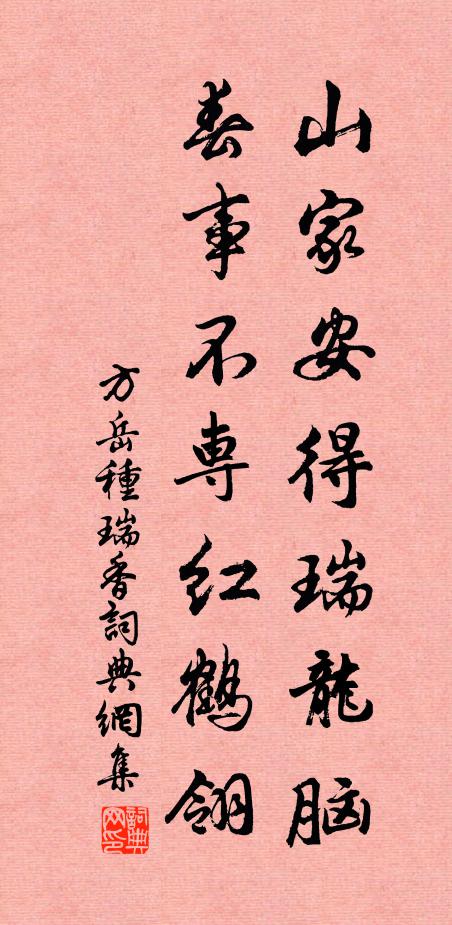 山家安得瑞龍脑
春事不専红鶴翎
方岳種瑞香詞典網集
詞典网印